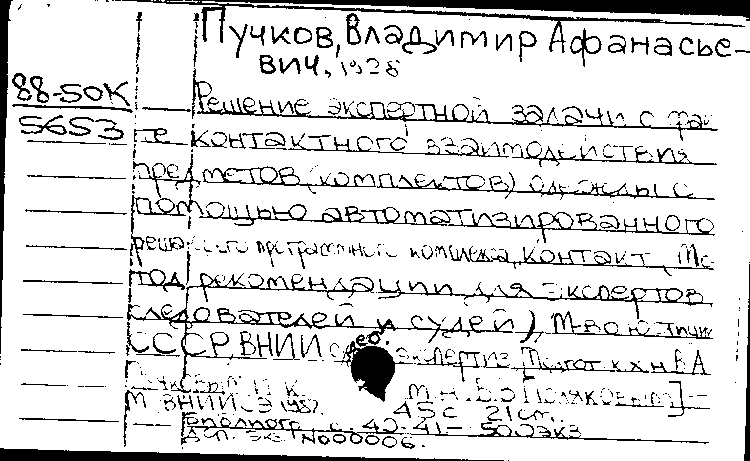 Пучков, Владимир Афанасье-
вич, 1928
88-50К
5653
Решение экспертной задачи о фак
те контактного взаимодействия
предметов (комплектов) одежды с
помощью автоматизированного
программного комплекса "Контакт" (Ме
тод. рекомендации для экспертов
следователей и судей), М-во юстиции
СССР, ВНИИ суд. экспертиз Подгот. к.х.н В А
Пучковым М К м.н. В.Э Поляковым] -
М ВНИИСЭ 1987. 45 с 21 см.
с. 40-41 - 500 экз
ДСП. экз N000006.